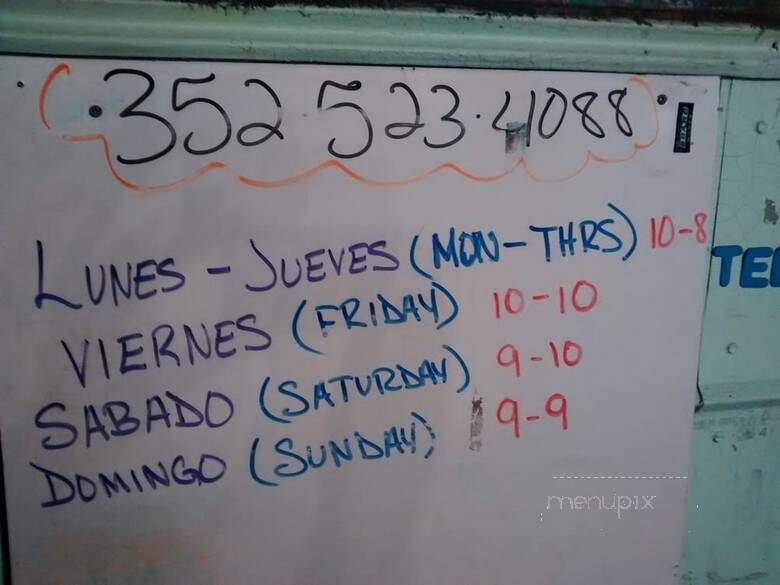 352 523.4088
LUNES - JUEVES (MON-THRS) 10-8
VIERNES (FRIDAY) 10-10
SABADO (SATURDAY) 9-10
DOMINGO (SUNDAY) 9-9
TE
menupix